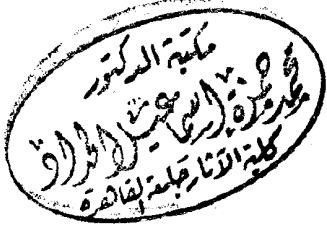 مكتبة الدكتور
محمد حمزة إسماعيل الحداد
كلية الآثار جامعة القاهرة